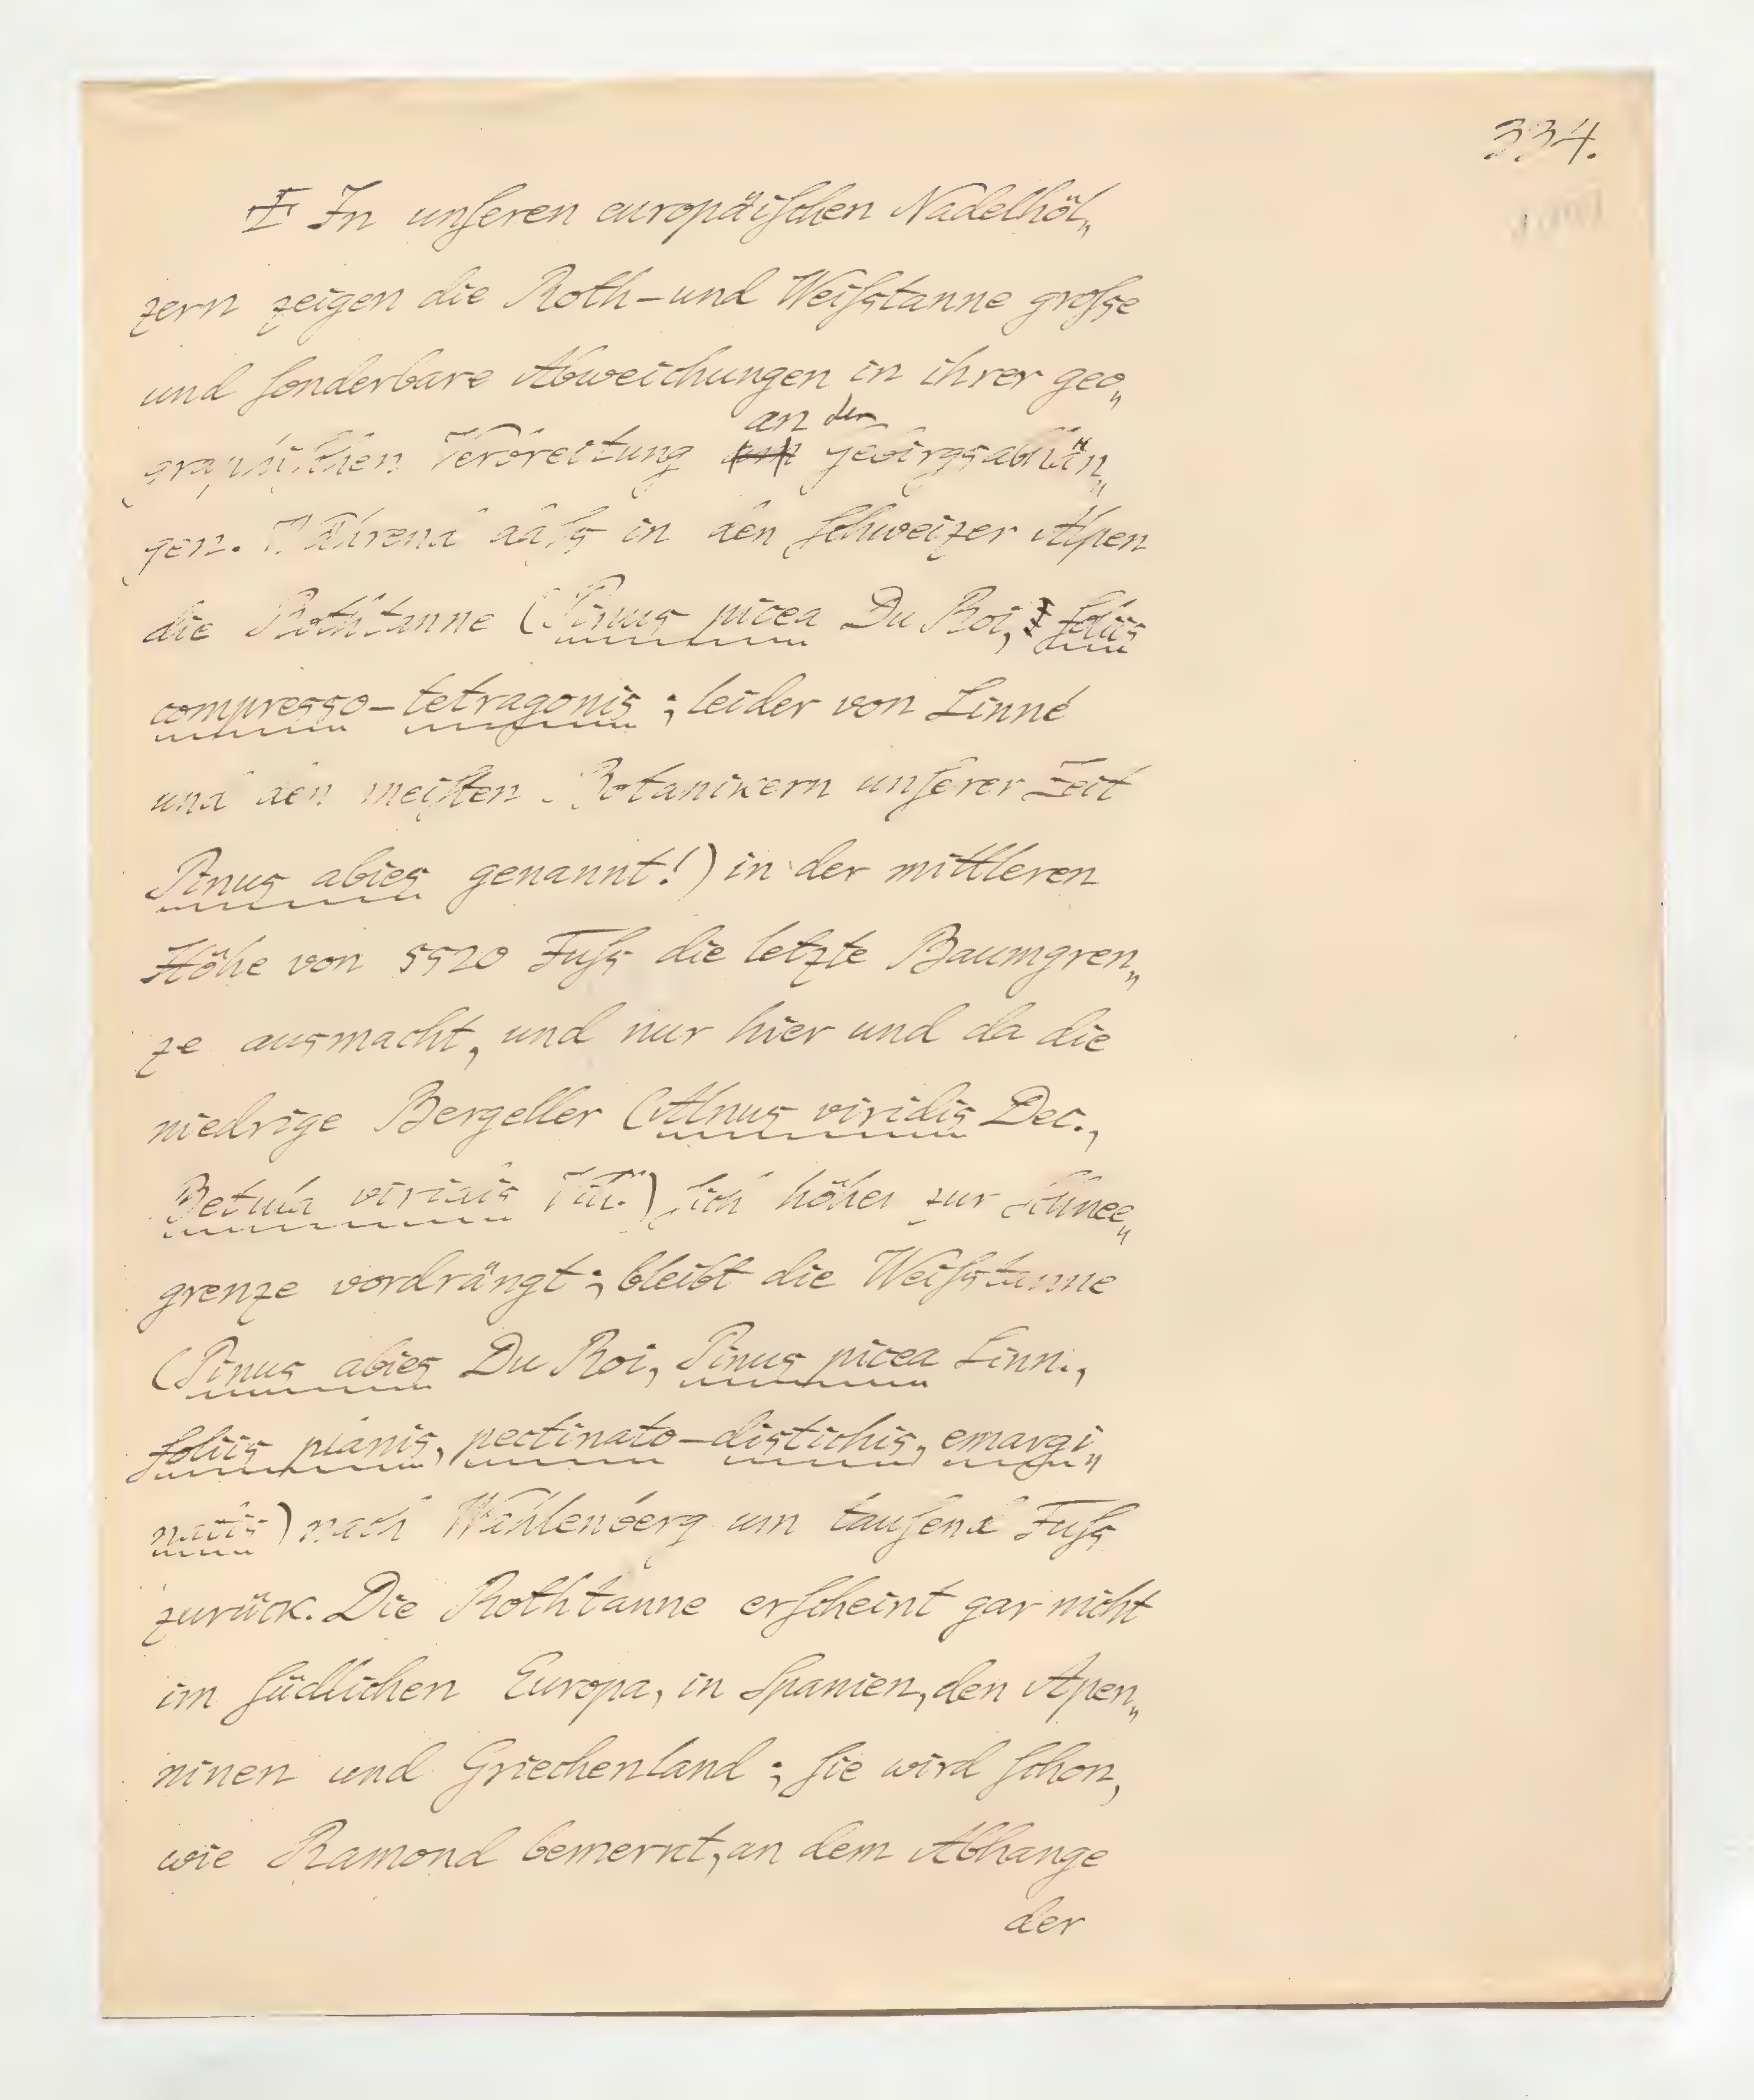 334.
In unſeren europäiſchen Nadelhöl„
zern zeigen die Roth-und Weiſstanne groſse
und ſonderbare Abweichungen in ihrer geo„
an den
graphiſchen Verbreitung Gebirgsabhän„
gen. Während daſs in den ſchweizer Alpen
die Rothtanne (Pinus picea Du Roi, foliis
compresso-tetragonis; leider von Linné
und den meiſten Botanikern unſerer Zeit
Pinus abies genannt!) in der mittleren
Höhe von 5520 Fuſs die letzte Baumgren„
ze ausmacht, und nur hier und da die
niedrige Bergeller (Alnus viridis Dec.,
Betula viridis Vill.) ſich höher zur Schnee„
grenze vordrängt; bleibt die Weiſstanne
(Pinus abies Du Roi, Pinus picea Linn.,
foliis planis, pectinato-distichis, emargi„
natis) nach Wahlenberg um tauſend Fuſs
zurück. Die Rothtanne erſcheint gar nicht
im ſüdlichen Europa, in Spanien, den Apen„
ninen und Griechenland; ſie wird ſchon,
wie Ramond bemerkt, an dem Abhange
der